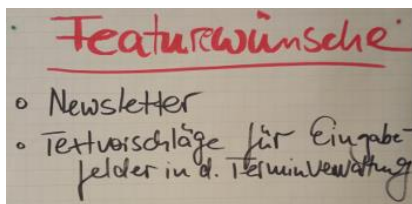 Featurewünsche
o Newsletter
o Textvorschläge für Eingabe-
felder in d. Terminverwaltung